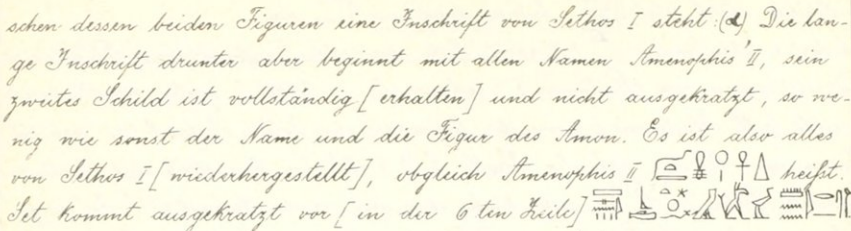 schen dessen beiden Figuren eine Inschrift von Sethos I steht:(d) Die lan-
ge Inschrift drunter aber beginnt mit allen Namen Amenophis' II, sein
zweites Schild ist vollständig [erhalten] und nicht ausgekratzt, so we-
nig wie sonst der Name und die Figur des Amon. Es ist also alles
von Sethos I [wiederhergestellt], obgleich Amenophis II heißt.
Set kommt ausgekratzt vor [in der 6ten Zeile]